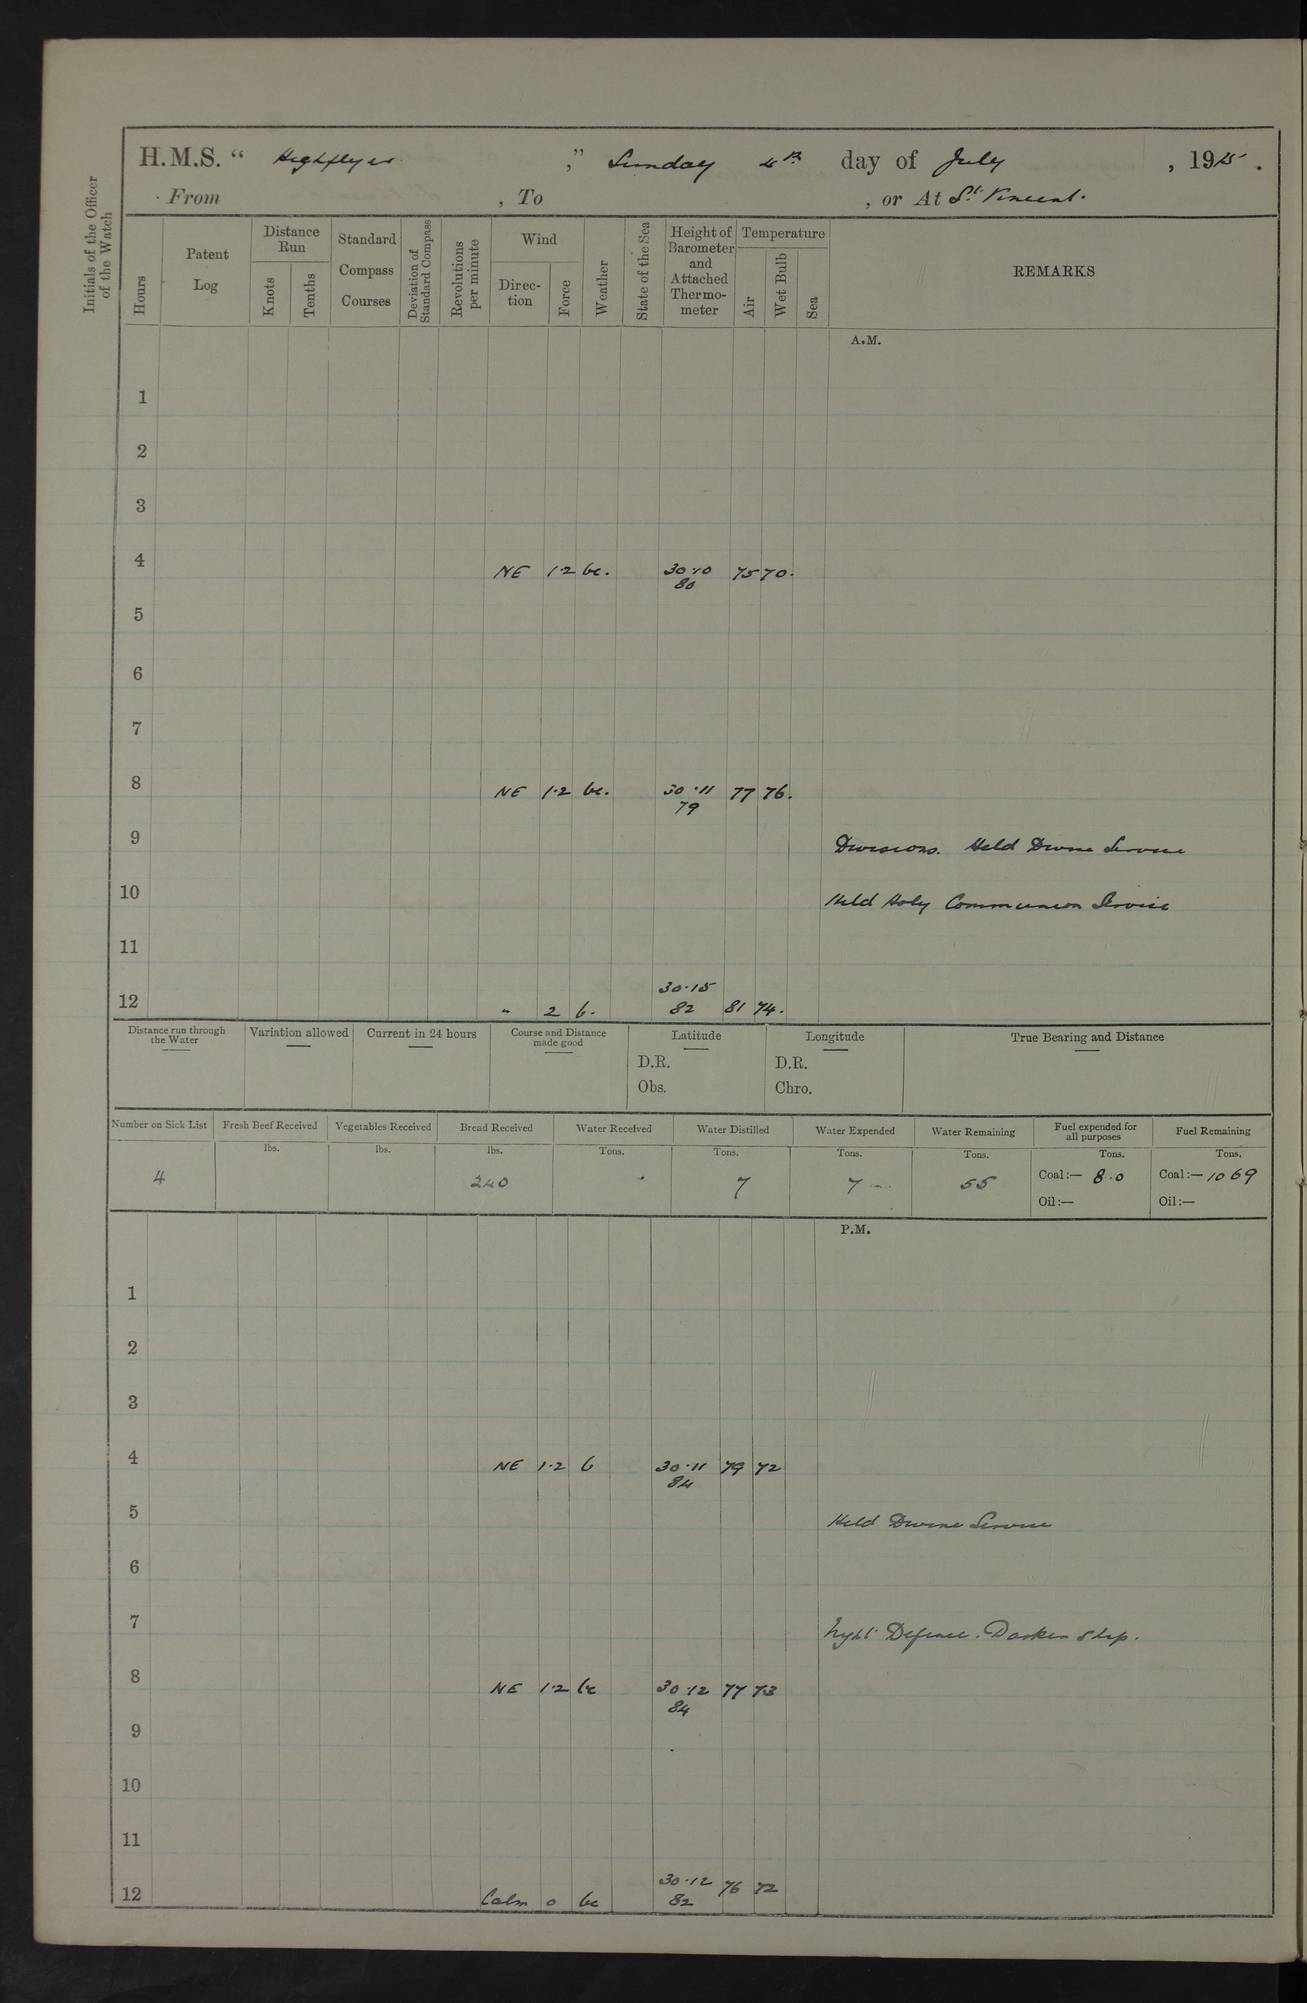 H.M.S. " Highflyer ," Sunday 4th day of July , 1915 .
From , To , or At St. Vincent.
Initials of the Officer of the Watch
Hours
Patent Log
Distance Run
Knots
Tenths
Standard Compass Courses
Deviation of Standard Compass
Revolutions per minute
Wind
Direction
Force
Weather
State of the Sea
Height of Barometer and Attached Thermometer
Temperature
Air
Wet Bulb
Sea
REMARKS
A.M.
1
2
3
4 NE 1·2 bc. 30·10 75 70.
80
5
6
7
8 NE 1·2 bc. 30·11 77 76.
79
9 Divisions. Held Divine Service
10 Held Holy Communion Service
11
30·15
12 " 2 b. 82 81 74.
Distance run through the Water
Variation allowed
Current in 24 hours
Course and Distance made good
Latitude
D.R.
Obs.
Longitude
D.R.
Chro.
True Bearing and Distance
Number on Sick List
4
Fresh Beef Received
lbs.
Vegetables Received
lbs.
Bread Received
lbs.
240
Water Received
Tons.
Water Distilled
Tons.
7
Water Expended
Tons.
7
Water Remaining
Tons.
55
Fuel expended for all purposes
Tons.
Coal:— 8.0
Oil:—
Fuel Remaining
Tons.
Coal:— 1069
Oil:—
P.M.
1
2
3
4 NE 1·2 b 30·11 79 72
84
5 Held Divine Service
6
7 Night Defence. Darken Ship.
8 NE 1·2 bc 30·12 77 73
84
9
10
11
30·12 76 72
12 Calm 0 bc 82